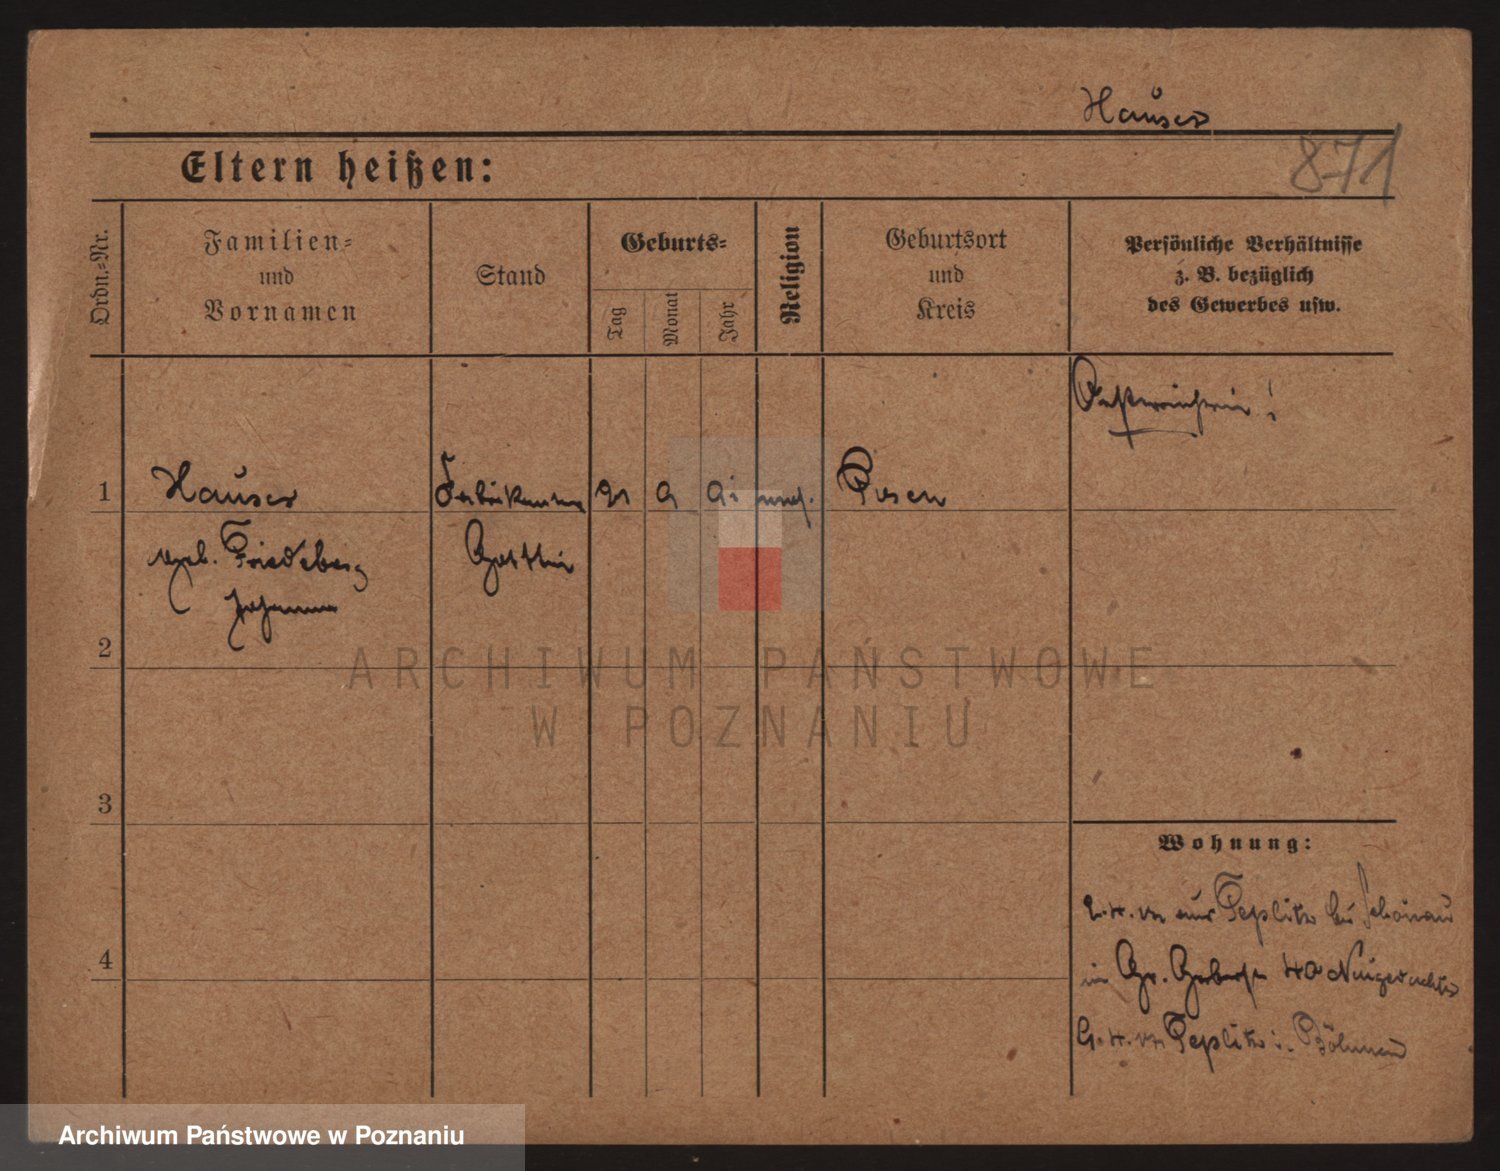 Hauser
871
Eltern heißen:
Ordn.-Nr.
Familien-
und
Vornamen
Stand
Geburts-
Tag
Monat
Jahr
Religion
Geburtsort
und
Kreis
Persönliche Verhältnisse
z. B. bezüglich
des Gewerbes usw.
Oesterreicherin!
1 Hauser Posen
geb. Friedeberg Gattin
Johanna
2
3
4
Wohnung:
aus Teplitz bei Schönau
in Gr. Gerberstr
Teplitz i. Böhmen
ARCHIWUM PAŃSTWOWE
W POZNANIU
Archiwum Państwowe w Poznaniu